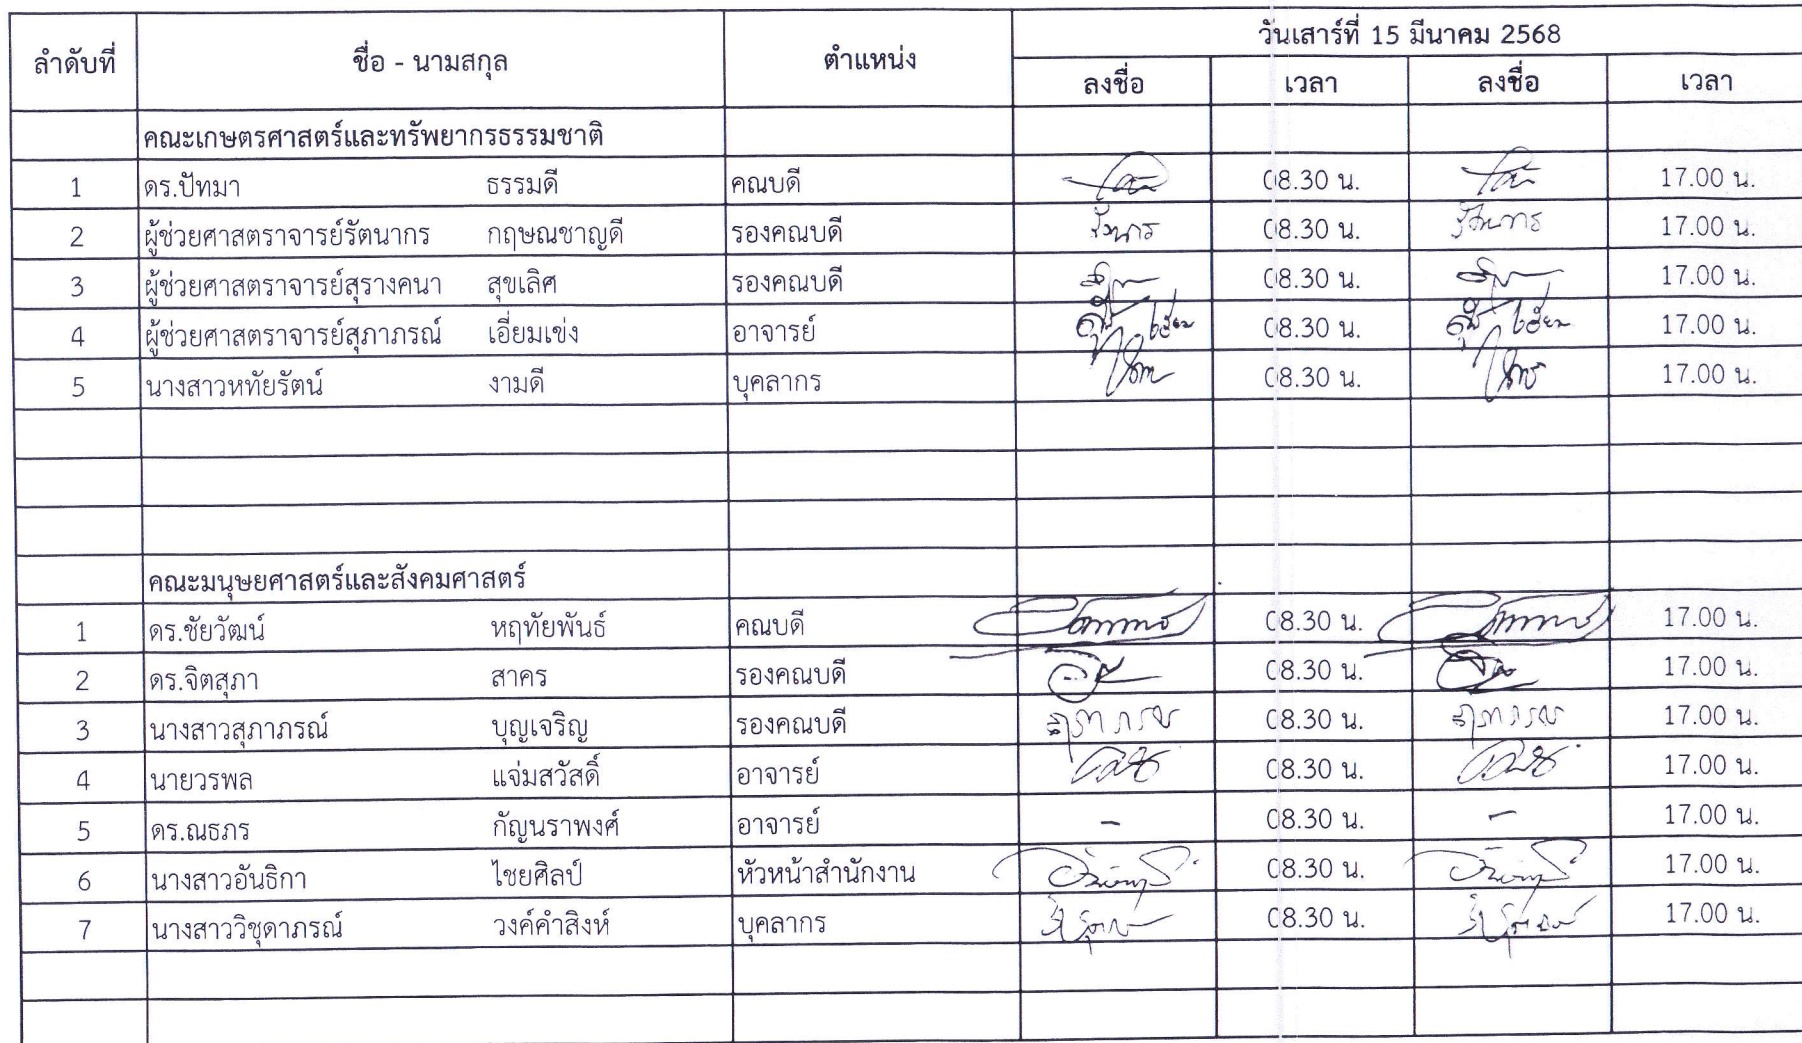 วันเสาร์ที่ 15 มีนาคม 2568
ลำดับที่ ชื่อ - นามสกุล ตำแหน่ง ลงชื่อ เวลา ลงชื่อ เวลา
คณะเกษตรศาสตร์และทรัพยากรธรรมชาติ
1 ดร.ปัทมา ธรรมดี คณบดี 08.30 น. 17.00 น.
2 ผู้ช่วยศาสตราจารย์รัตนากร กฤษณชาญดี รองคณบดี รัตนากร 08.30 น. รัตนากร 17.00 น.
3 ผู้ช่วยศาสตราจารย์สุรางคนา สุขเลิศ รองคณบดี 08.30 น. 17.00 น.
4 ผู้ช่วยศาสตราจารย์สุภาภรณ์ เอี่ยมเข่ง อาจารย์ 08.30 น. 17.00 น.
5 นางสาวหทัยรัตน์ งามดี บุคลากร 08.30 น. 17.00 น.
คณะมนุษยศาสตร์และสังคมศาสตร์
1 ดร.ชัยวัฒน์ หฤทัยพันธ์ คณบดี 08.30 น. 17.00 น.
2 ดร.จิตสุภา สาคร รองคณบดี 08.30 น. 17.00 น.
3 นางสาวสุภาภรณ์ บุญเจริญ รองคณบดี สุภาภรณ์ 08.30 น. สุภาภรณ์ 17.00 น.
4 นายวรพล แจ่มสวัสดิ์ อาจารย์ 08.30 น. 17.00 น.
5 ดร.ณธภร กัญนราพงศ์ อาจารย์ - 08.30 น. - 17.00 น.
6 นางสาวอันธิกา ไชยศิลป์ หัวหน้าสำนักงาน 08.30 น. 17.00 น.
7 นางสาววิชุดาภรณ์ วงค์คำสิงห์ บุคลากร 08.30 น. 17.00 น.